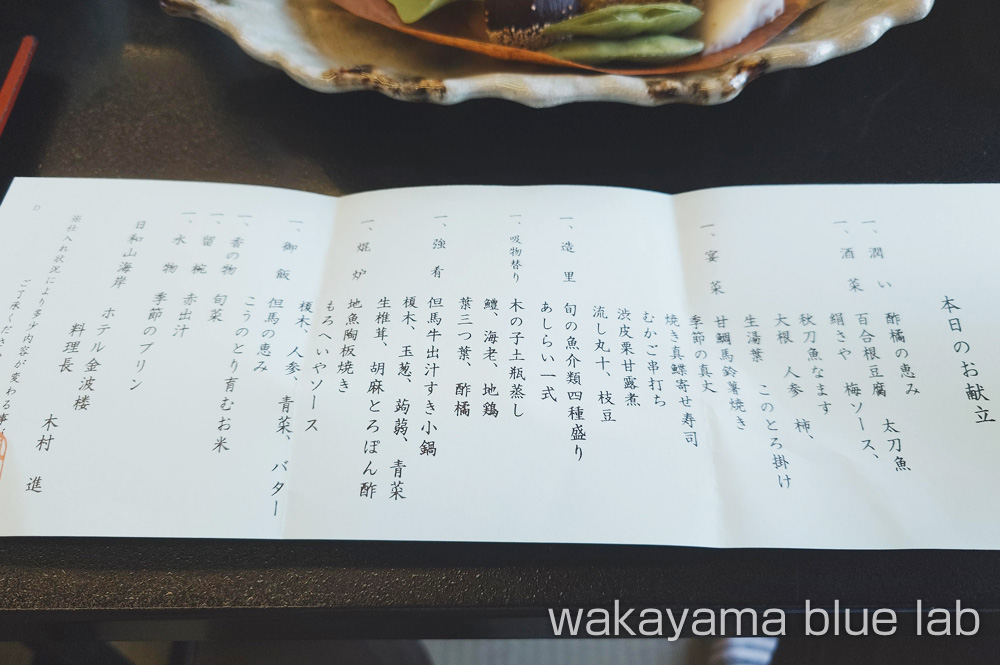 本日のお献立
一、潤い 酢橘の恵み
一、酒菜 百合根豆腐 太刀魚
絹さや 梅ソース、
秋刀魚なます
大根 人参 柿、
生湯葉 このとろ掛け
一、宴菜 甘鯛馬鈴薯焼き
季節の真丈
焼き真鰈寄せ寿司
むかご串打ち
渋皮栗甘露煮
流し丸十、枝豆
一、造里 旬の魚介類四種盛り
あしらい一式
一、吸物替り 木の子土瓶蒸し
鱧、海老、地鶏
葉三つ葉、酢橘
一、強肴 但馬牛出汁すき小鍋
榎木、玉葱、蒟蒻、青菜
生椎茸、胡麻とろぽん酢
一、焜炉 地魚陶板焼き
もろへいやソース
榎木、人参、青菜、バター
一、御飯 但馬の恵み
こうのとり育むお米
一、香の物 旬菜
一、留椀 赤出汁
一、水物 季節のプリン
日和山海岸 ホテル金波楼
料理長 木村 進
※仕入れ状況により多少内容が変わる事
ご了承ください
wakayama blue lab